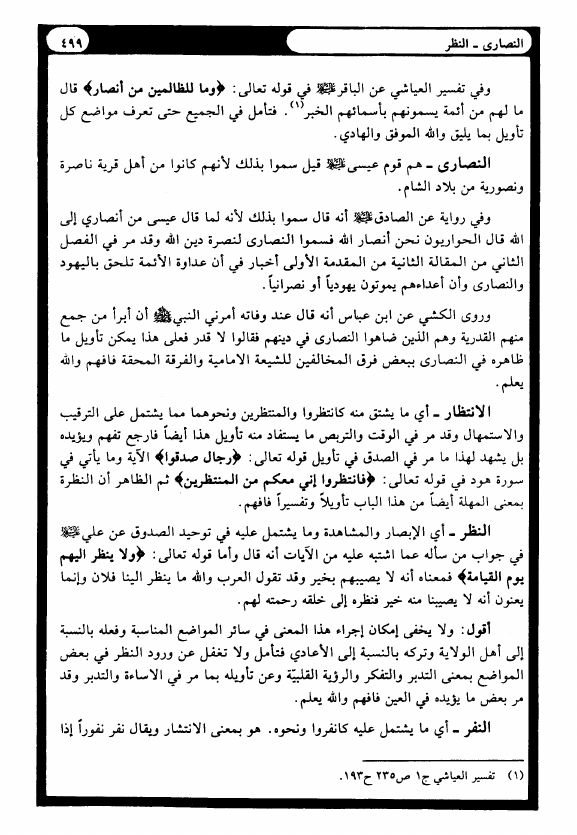 النصارى - النظر
٤٩٩
وفي تفسير العياشي عن الباقر ﷺ في قوله تعالى: ﴿وما للظالمين من أنصار﴾ قال
ما لهم من أئمة يسمونهم بأسمائهم الخبر(١). فتأمل في الجميع حتى تعرف مواضع كل
تأويل بما يليق والله الموفق والهادي.
النصارى - هم قوم عيسى ﷺ قيل سموا بذلك لأنهم كانوا من أهل قرية ناصرة
ونصورية من بلاد الشام.
وفي رواية عن الصادق ﷺ أنه قال سموا بذلك لأنه لما قال عيسى من أنصاري إلى
الله قال الحواريون نحن أنصار الله فسموا النصارى لنصرة دين الله وقد مر في الفصل
الثاني من المقالة الثانية من المقدمة الأولى أخبار في أن عداوة الأئمة تلحق باليهود
والنصارى وأن أعداءهم يموتون يهودياً أو نصرانياً.
وروى الكشي عن ابن عباس أنه قال عند وفاته أمرني النبي ﷺ أن أبرأ من جمع
منهم القدرية وهم الذين ضاهوا النصارى في دينهم فقالوا لا قدر فعلى هذا يمكن تأويل ما
ظاهره في النصارى ببعض فرق المخالفين للشيعة الامامية والفرقة المحقة فافهم والله
يعلم.
الانتظار - أي ما يشتق منه كانتظروا والمنتظرين ونحوهما مما يشتمل على الترقيب
والاستمهال وقد مر في الوقت والتربص ما يستفاد منه تأويل هذا أيضاً فارجع تفهم ويؤيده
بل يشهد لهذا ما مر في الصدق في تأويل قوله تعالى: ﴿رجال صدقوا﴾ الآية وما يأتي في
سورة هود في قوله تعالى: ﴿فانتظروا إني معكم من المنتظرين﴾ ثم الظاهر أن النظرة
بمعنى المهلة أيضاً من هذا الباب تأويلاً وتفسيراً فافهم.
النظر - أي الإبصار والمشاهدة وما يشتمل عليه في توحيد الصدوق عن علي ﷺ
في جواب من سأله عما اشتبه عليه من الآيات أنه قال وأما قوله تعالى: ﴿ولا ينظر اليهم
يوم القيامة﴾ فمعناه أنه لا يصيبهم بخير وقد تقول العرب والله ما ينظر الينا فلان وإنما
يعنون أنه لا يصيبنا منه خير فنظره إلى خلقه رحمته لهم.
أقول: ولا يخفى إمكان إجراء هذا المعنى في سائر المواضع المناسبة وفعله بالنسبة
إلى أهل الولاية وتركه بالنسبة إلى الأعادي فتأمل ولا تغفل عن ورود النظر في بعض
المواضع بمعنى التدبر والتفكر والرؤية القلبيّة وعن تأويله بما مر في الاساءة والتدبر وقد
مر بعض ما يؤيده في العين فافهم والله يعلم.
النفر - أي ما يشتمل عليه كانفروا ونحوه. هو بمعنى الانتشار ويقال نفر نفوراً إذا
(١) تفسير العياشي ج١ ص٢٣٥ ح١٩٣.